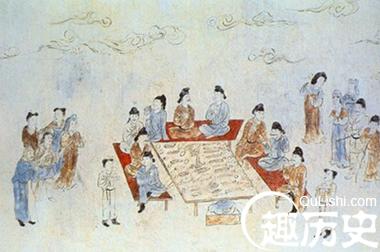 QuLiShi.com
趣历史